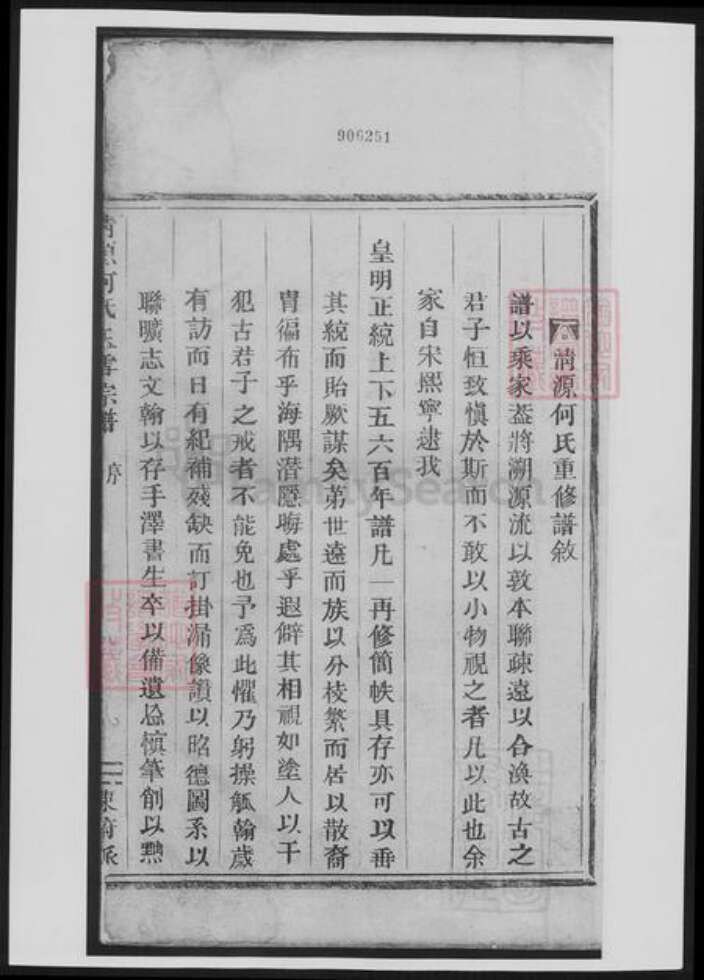 906251
清源何氏重修譜敘
譜以乘家葢將溯源流以敦本聯疎遠以合渙故古之
君子恒致慎於斯而不敢以小物視之者凡以此也余
家自宋熙寧逮我
皇明正統上下五六百年譜凡一再修簡帙具存亦可以垂
其統而貽厥謀矣第世遠而族以分枝繁而居以散裔
胄徧布乎海隅潛歷晦處乎遐僻其相視如塗人以干
犯古君子之戒者不能免也予爲此懼乃躬操觚翰歲
有訪而日有紀補殘缺而訂掛漏像讚以昭德圖系以
聯曠志文翰以存手澤書生卒以備遺忘慎筆削以㸃
清源何氏宗譜
序
東府派
FamilySearch